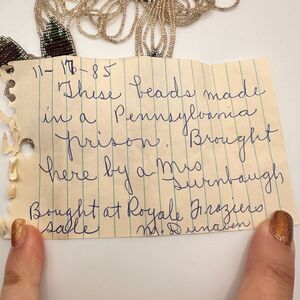 11-16-85
These beads made
in a Pennsylvania
prison. Brought
here by a Mrs
Turnbaugh
Bought at Royale Fraziers
sale M. Dunaven